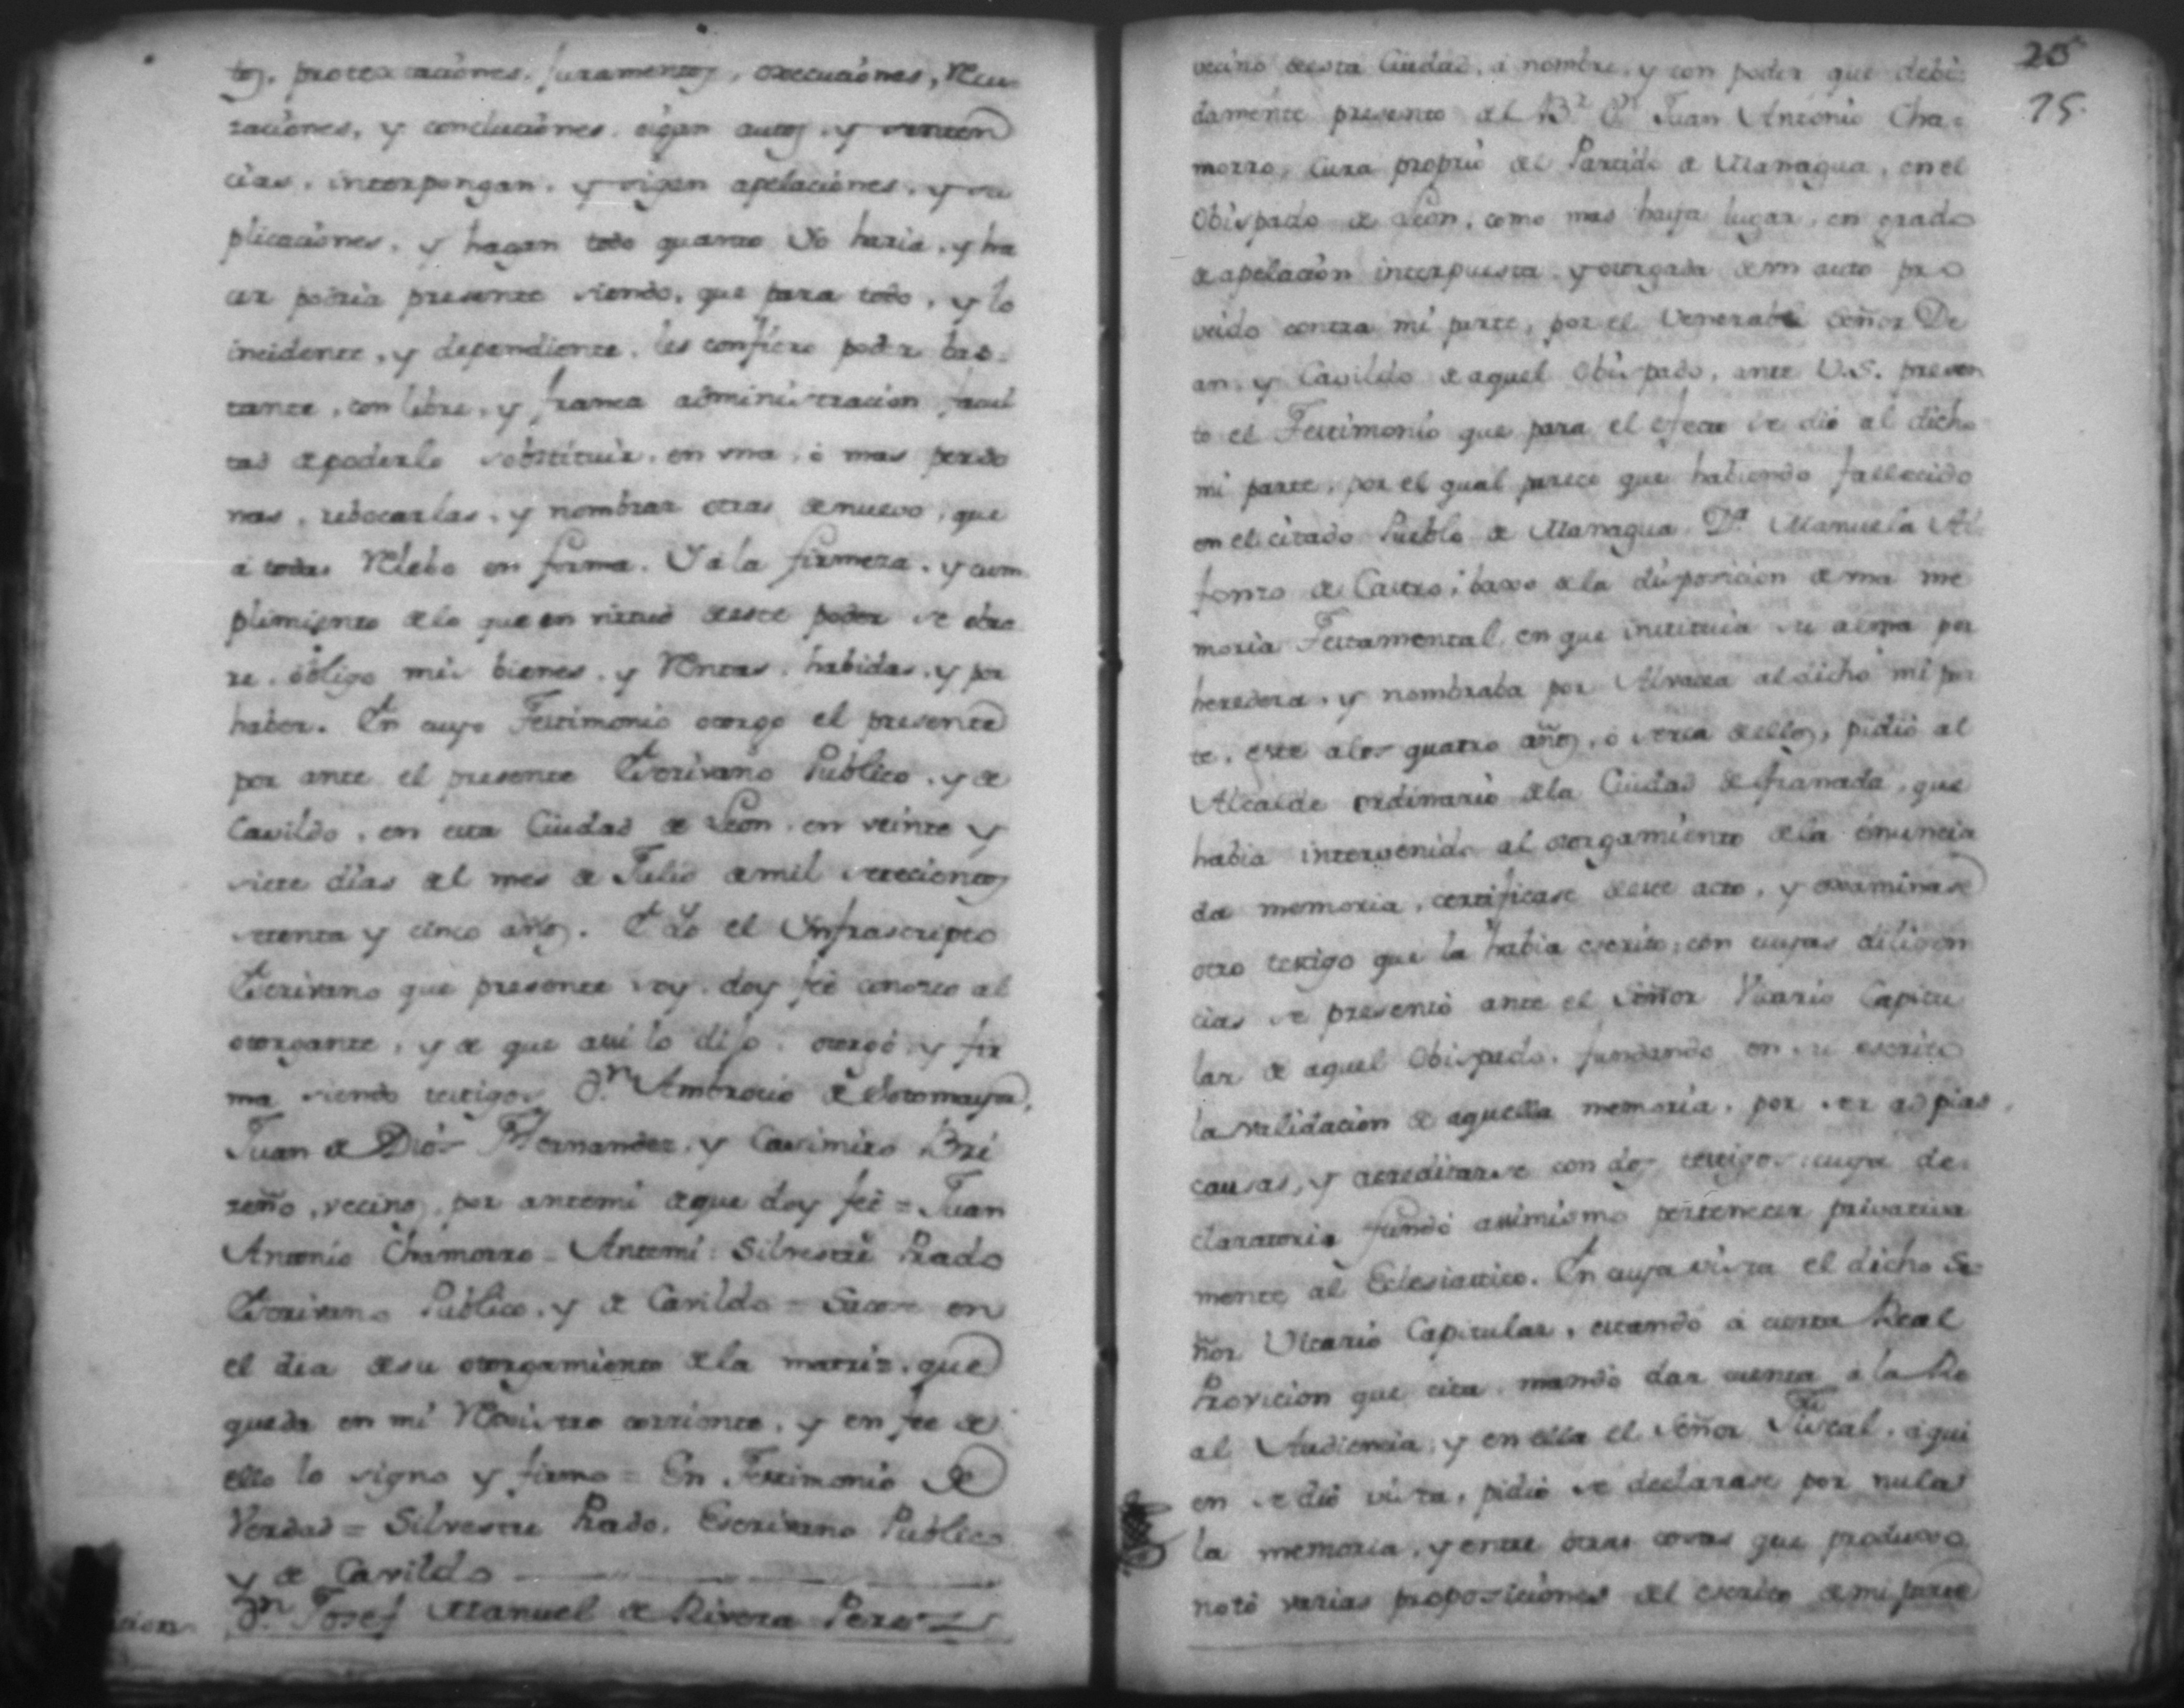 tos, protextaciones, juramentos, execuciones, Recu
saciones, y concluciones, oigan autos, y senten
cias, interpongan, y sigan apelaciones, y su
plicaciones, y hagan todo quanto Yo haria, y ha
cer podria presente siendo, que para todo, y lo
incidente, y dependiente, les confiero poder bas-
tante, con libre, y franca administracion facul
tad de poderlo sobstituir, en una, ó mas perso
nas, rebocarlas, y nombrar otras de nuevo, que
á todas Relebo en forma. Y á la firmeza, y cum
plimiento de lo que en virtud de este poder se obra
re, obligo mis bienes, y Rentas, habidas, y por
haber. En cuyo Testimonio otorgo el presente
por ante el presente Escrivano Público, y de
Cavildo, en esta Ciudad de Leon, en veinte y
siete dias del mes de Julio de mil setecientos
setenta y cinco años. E Yo el Ynfrascripto
Escrivano que presente soy, doy feé conosco al
otorgante, y de que assi lo dijo, otorgó, y fir
ma siendo testigos Dn. Ambrocio de Sotomayor,
Juan de Dios Hernandez, y Casimiro Bri
zeño, vecinos, por antemi de que doy feé = Juan
Antonio Chamorro = Antemi: Silvestre Prado
Escrivano Público, y de Cavildo = Sacose en
el dia de su otorgamiento de la matriz, que
queda en mi Registro corriente, y en fee de
ello lo signo y firmo = En Testimonio de
Verdad = Silvestre Prado, Escrivano Publico
y de Cavildo
Dn. Josef Manuel de Rivera Perez
25
75.
vecino de esta Ciudad, á nombre, y con poder que debi-
damente presento del Br. Dn. Juan Antonio Cha-
morro, Cura proprio del Partido de Managua, en el
Obispado de Leon, como mas haya lugar, en grado
de apelacion interpuesta, y otorgada de un auto pro
veido contra mi parte, por el Venerable Señor De
an, y Cavildo de aquel Obispado, ante U.S. presen
to el Testimonio que para el efecto se dió al dicho
mi parte, por el qual parece que habiendo fallecido
en el citado Pueblo de Managua Da. Manuela Al
fonzo de Castro, baxo de la disposicion de una me
moria Testamental, en que instituia su alma por
heredera, y nombraba por Alvacea al dicho mi par
te, este a los quatro años, ó cerca de ellos, pidió al
Alcalde ordinario de la Ciudad de Granada, que
habia intervenido al otorgamiento de la enuncia
da memoria, certificase de este acto, y examinase
otro testigo que la habia escrito; con cuyas diligen
cias se presentó ante el Señor Vicario Capitu
lar de aquel Obispado, fundando en su escrito
la validacion de aquella memoria, por ser ad pias
causas, y acreditarse con dos testigos: cuya de-
claratoria fundó assimismo pertenecer privativa
mente al Eclesiastico. En cuya vista el dicho Se-
ñor Vicario Capitular, citando á cierta Real
Provicion que cita, mandó dar cuenta á la Re
al Audiencia, y en ella el Señor Fiscal, á qui
en se dió vista, pidió se declarase por nula
la memoria, y entre otras cosas que produxo
notó varias proposiciones del escrito de mi parte